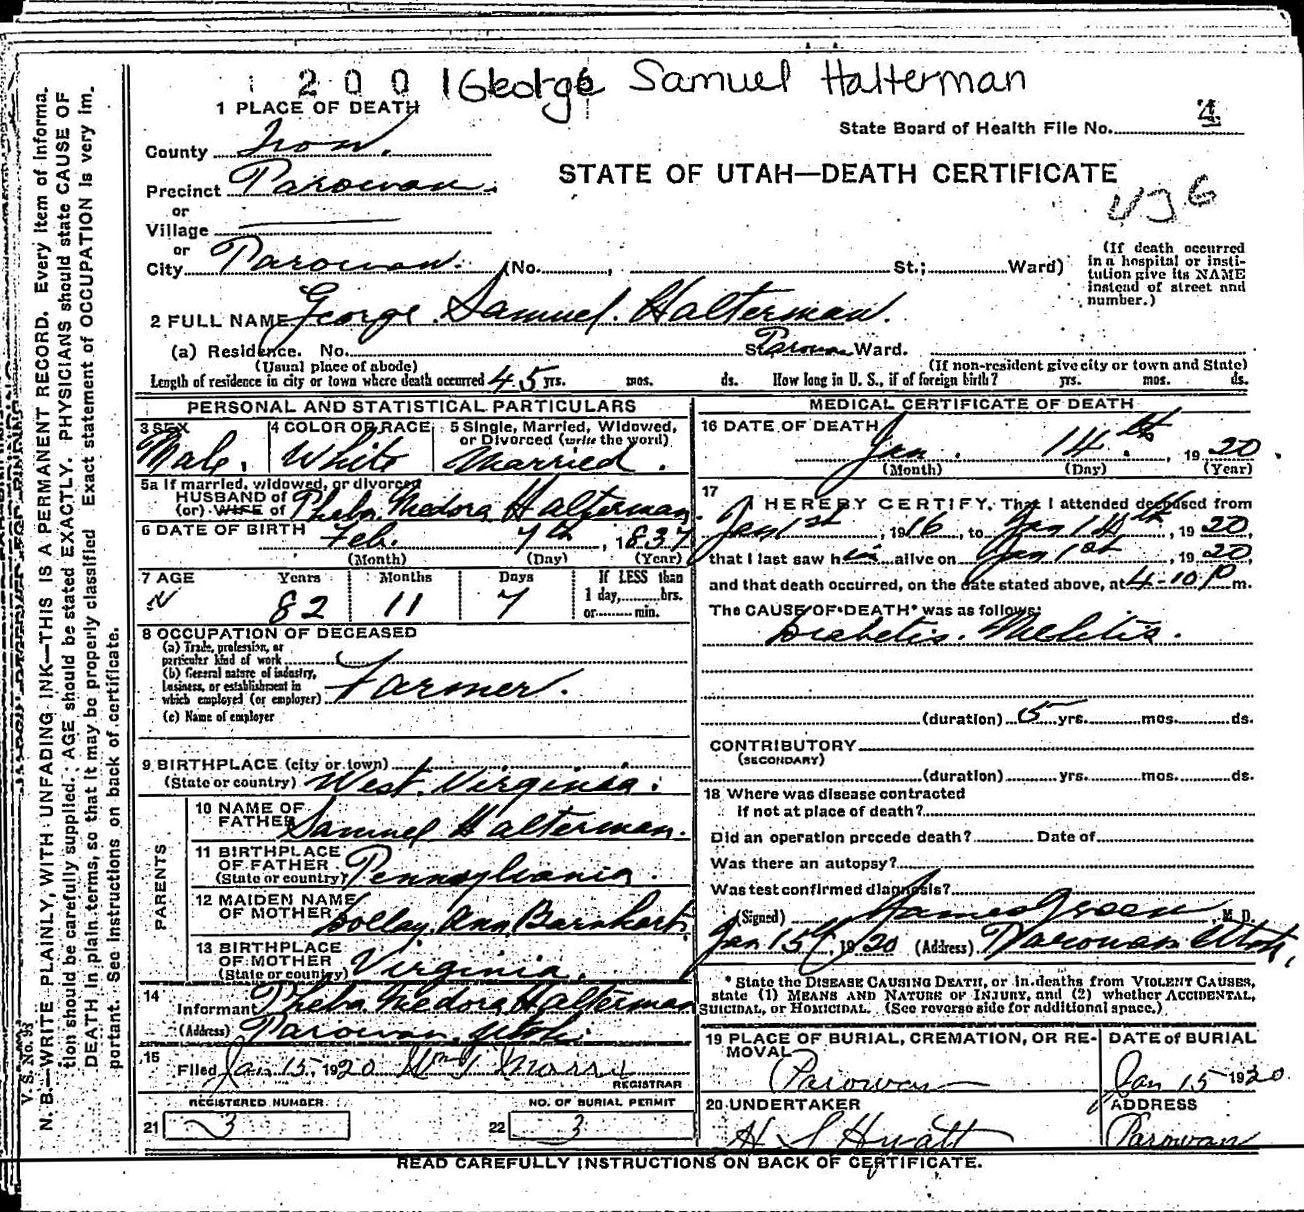 2 0 0 1 George Samuel Halterman
1 PLACE OF DEATH
State Board of Health File No. 4
County Iron.
STATE OF UTAH—DEATH CERTIFICATE
Precinct Parowan.
or
Village
or
City Parowan. (No. , St.; Ward)
(If death occurred in a hospital or institution give its NAME instead of street and number.)
2 FULL NAME George. Samuel. Halterman.
(a) Residence. No. St. Parowan Ward.
(Usual place of abode) (If non-resident give city or town and State)
Length of residence in city or town where death occurred 45 yrs. mos. ds. How long in U. S., if of foreign birth? yrs. mos. ds.
PERSONAL AND STATISTICAL PARTICULARS
3 SEX 4 COLOR OR RACE 5 Single, Married, Widowed, or Divorced (write the word)
Male. White Married.
5a If married, widowed, or divorced
HUSBAND of
(or) WIFE of Pheba Medora Halterman
6 DATE OF BIRTH Feb. 7th, 1837
(Month) (Day) (Year)
7 AGE Years Months Days If LESS than
1 day, hrs.
82 11 7 or min.
8 OCCUPATION OF DECEASED
(a) Trade, profession, or
particular kind of work
(b) General nature of industry,
business, or establishment in
which employed (or employer) Farmer.
(c) Name of employer
9 BIRTHPLACE (city or town)
(State or country) West Virginia.
PARENTS
10 NAME OF
FATHER Samuel Halterman.
11 BIRTHPLACE
OF FATHER
(State or country) Pennsylvania.
12 MAIDEN NAME
OF MOTHER Dolley Ann Barnhart
13 BIRTHPLACE
OF MOTHER
(State or country) Virginia.
14
Informant Pheba Medora Halterman
(Address) Parowan, Utah.
15
Filed Jan 15, 1920 Wm
REGISTRAR
REGISTERED NUMBER NO. OF BURIAL PERMIT
21 3 22 3
MEDICAL CERTIFICATE OF DEATH
16 DATE OF DEATH
Jan. 14th, 1920.
(Month) (Day) (Year)
17
I HEREBY CERTIFY, That I attended deceased from
Jan 1st, 1916, to Jan 14th, 1920,
that I last saw him alive on Jan 1st, 1920,
and that death occurred, on the date stated above, at 4-10 P m.
The CAUSE OF DEATH* was as follows:
Diabetis. Mellitis.
(duration) 5 yrs. mos. ds.
CONTRIBUTORY
(SECONDARY)
(duration) yrs. mos. ds.
18 Where was disease contracted
if not at place of death?
Did an operation precede death? Date of
Was there an autopsy?
Was test confirmed diagnosis?
(Signed) James Green, M.D.
Jan 15th, 1920 (Address) Parowan Utah,
*State the DISEASE CAUSING DEATH, or in deaths from VIOLENT CAUSES,
state (1) MEANS AND NATURE OF INJURY, and (2) whether ACCIDENTAL,
SUICIDAL, or HOMICIDAL. (See reverse side for additional space.)
19 PLACE OF BURIAL, CREMATION, OR RE-
MOVAL
DATE of BURIAL
Parowan Jan 15 1920
20 UNDERTAKER ADDRESS
H S Hyatt Parowan
READ CAREFULLY INSTRUCTIONS ON BACK OF CERTIFICATE.
V. S. No. 98
N. B.—WRITE PLAINLY, WITH UNFADING INK—THIS IS A PERMANENT RECORD. Every item of informa-
tion should be carefully supplied. AGE should be stated EXACTLY. PHYSICIANS should state CAUSE OF
DEATH in plain terms, so that it may be properly classified. Exact statement of OCCUPATION is very im-
portant. See instructions on back of certificate.